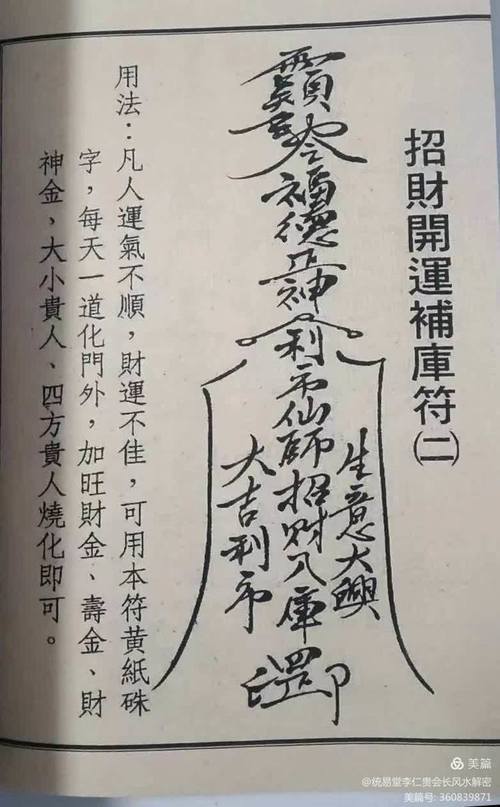 招財開運補庫符㈡
福德正神利市仙師招財入庫
生意大興
大吉利市
用法：凡人運氣不順，財運不佳，可用本符黃紙硃
字，每天一道化門外，加旺財金、壽金、財
神金，大小貴人、四方貴人燒化即可。
美篇
@统易堂李仁贵会长风水解密
美篇号: 360839871